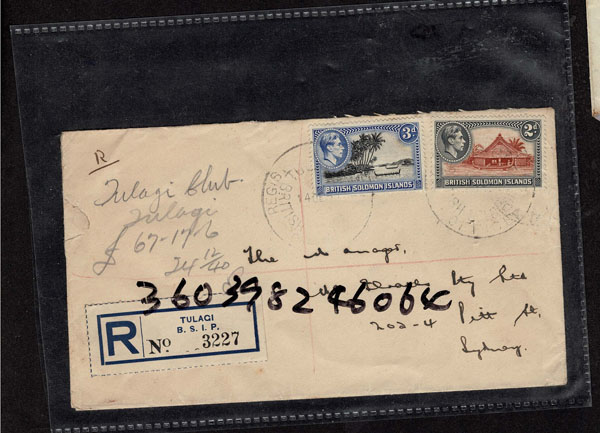 R
Tulagi Club
Tulagi
£ 67-17-6
24 12/40
3d
BRITISH SOLOMON ISLANDS
2d
BRITISH SOLOMON ISLANDS
The Manager,
Pty Ltd
360398246064
202-4 Pitt St.
Sydney.
R
TULAGI
B. S. I. P.
No 3227